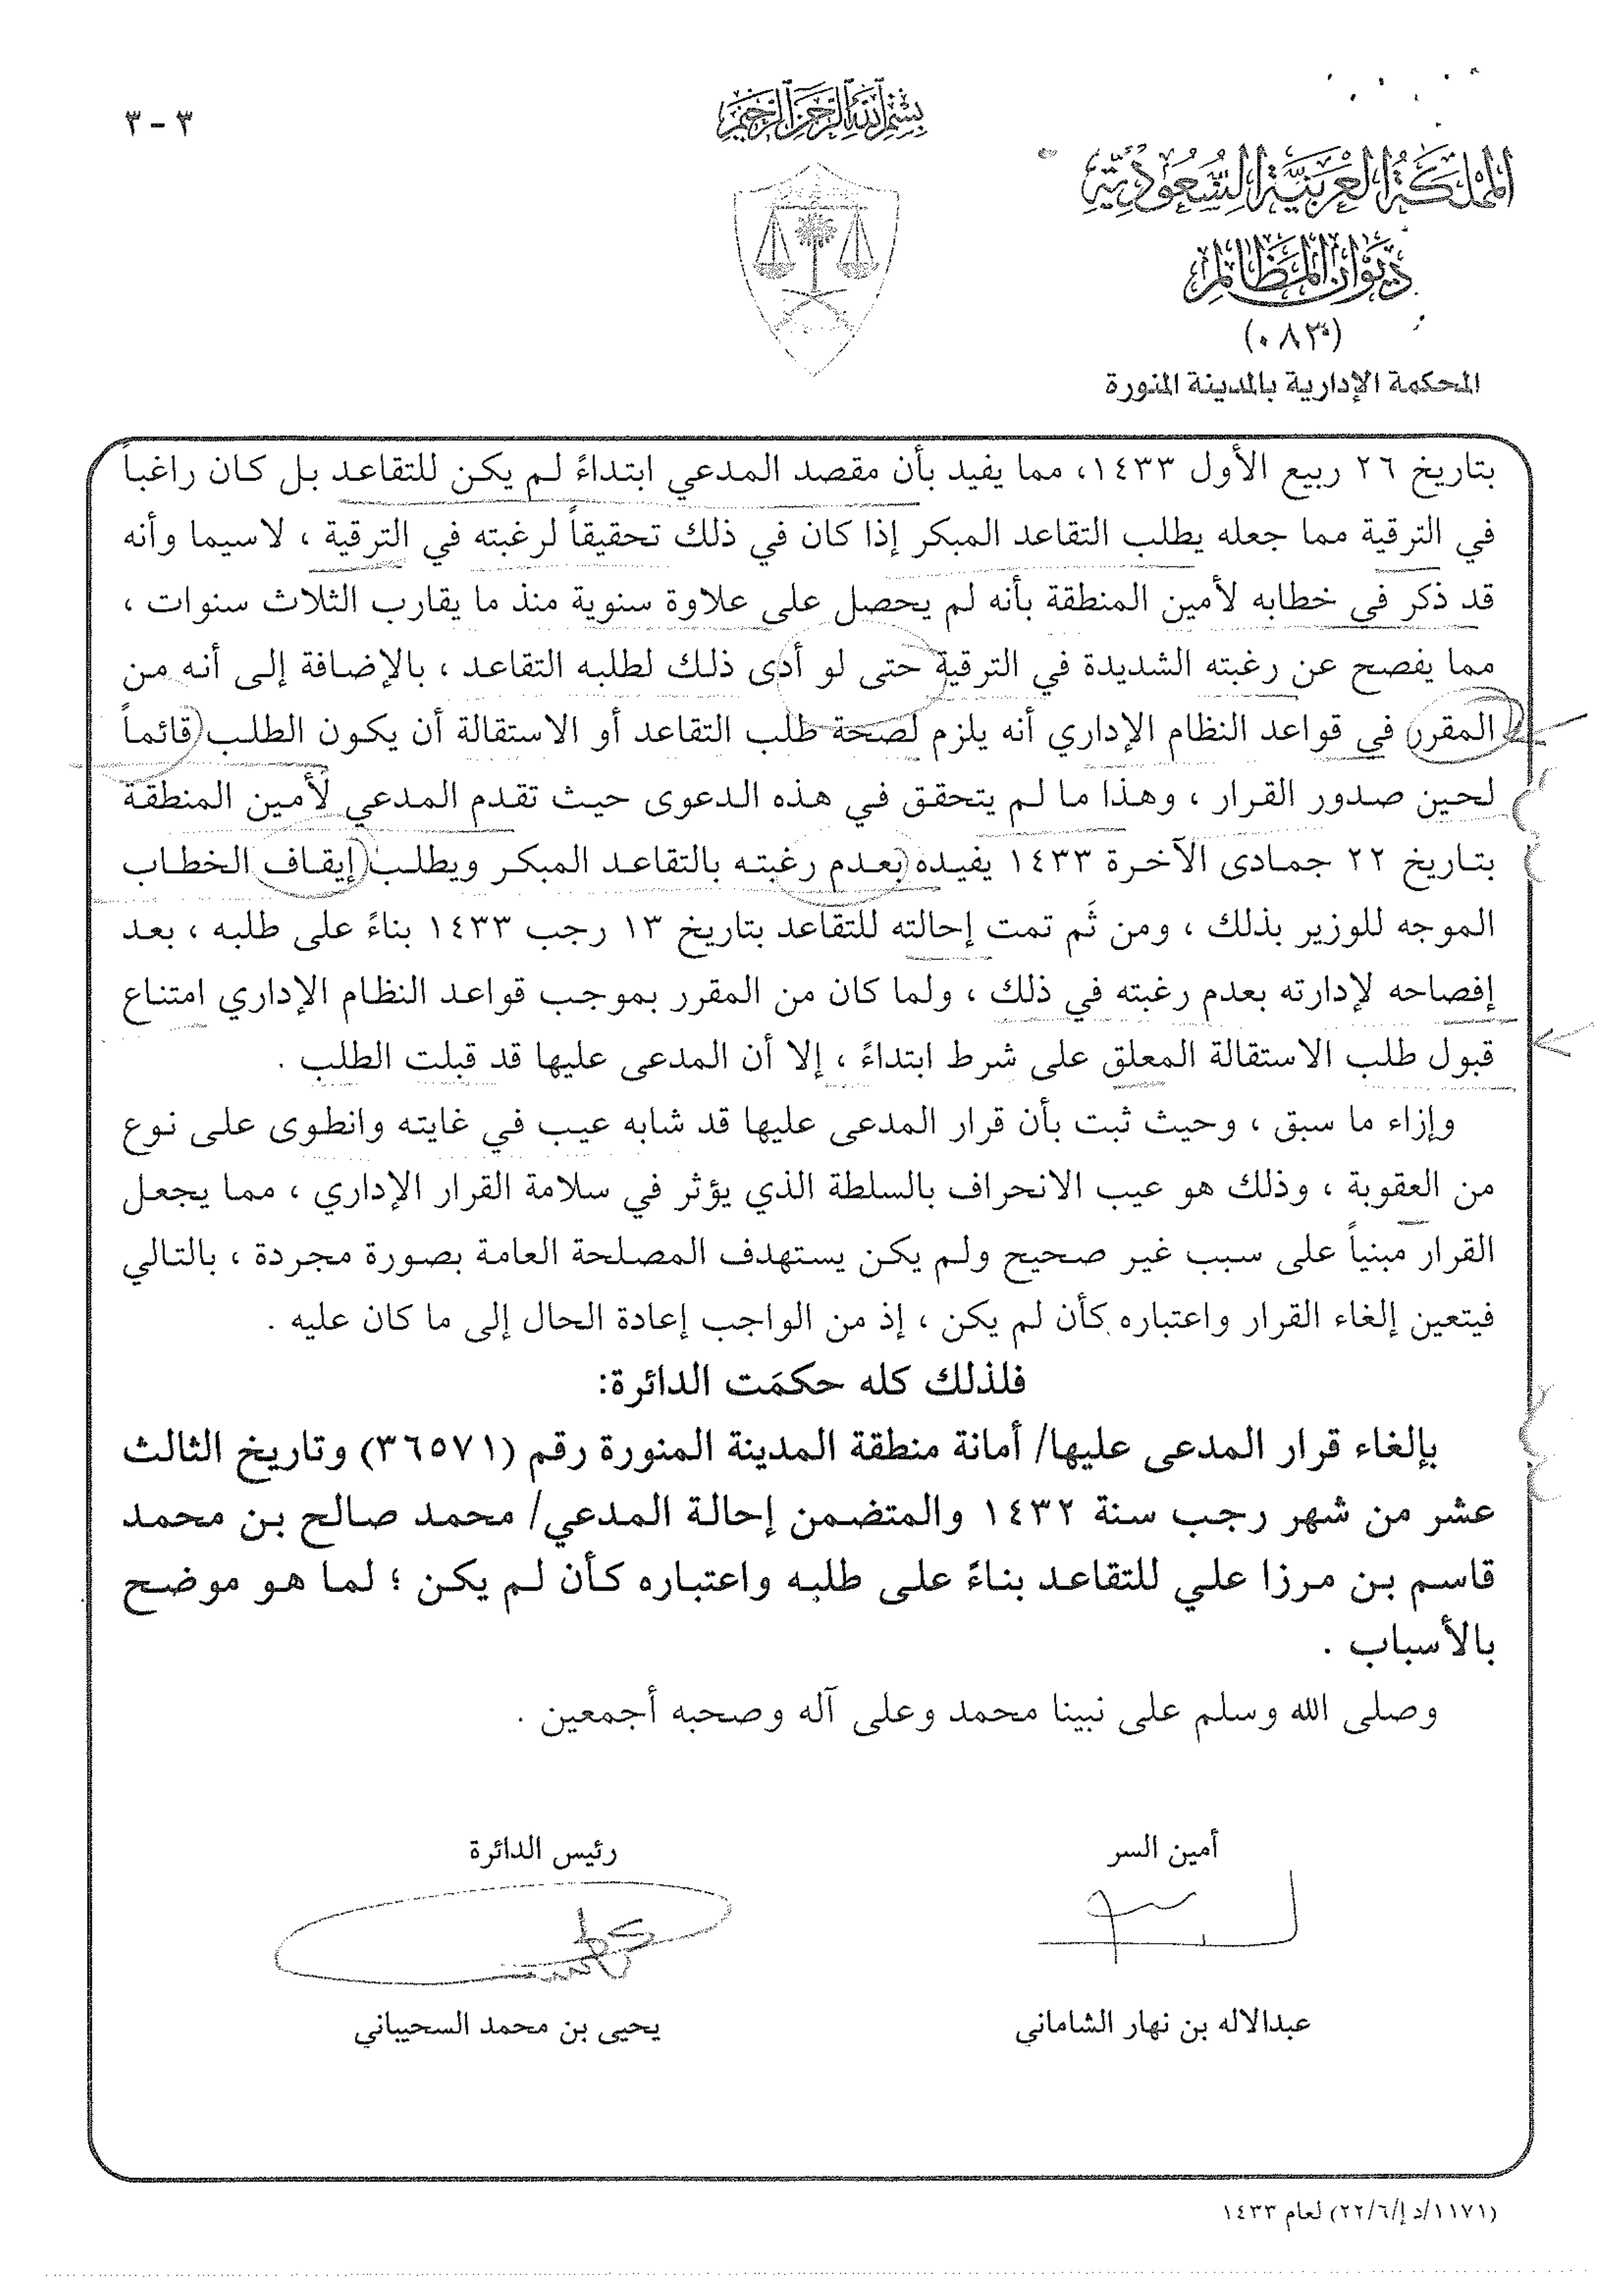 ٣ - ٣
بسم الله الرحمن الرحيم
المملكة العربية السعودية
ديوان المظالم
(٠٨٣)
المحكمة الإدارية بالمدينة المنورة
بتاريخ ٢٦ ربيع الأول ١٤٣٣، مما يفيد بأن مقصد المدعي ابتداءً لم يكن للتقاعد بل كان راغباً
في الترقية مما جعله يطلب التقاعد المبكر إذا كان في ذلك تحقيقاً لرغبته في الترقية ، لاسيما وأنه
قد ذكر في خطابه لأمين المنطقة بأنه لم يحصل على علاوة سنوية منذ ما يقارب الثلاث سنوات ،
مما يفصح عن رغبته الشديدة في الترقية حتى لو أدى ذلك لطلبه التقاعد ، بالإضافة إلى أنه من
المقرر في قواعد النظام الإداري أنه يلزم لصحة طلب التقاعد أو الاستقالة أن يكون الطلب قائماً
لحين صدور القرار ، وهذا ما لم يتحقق في هذه الدعوى حيث تقدم المدعي لأمين المنطقة
بتاريخ ٢٢ جمادى الآخرة ١٤٣٣ يفيده بعدم رغبته بالتقاعد المبكر ويطلب إيقاف الخطاب
الموجه للوزير بذلك ، ومن ثَم تمت إحالته للتقاعد بتاريخ ١٣ رجب ١٤٣٣ بناءً على طلبه ، بعد
إفصاحه لإدارته بعدم رغبته في ذلك ، ولما كان من المقرر بموجب قواعد النظام الإداري امتناع
قبول طلب الاستقالة المعلق على شرط ابتداءً ، إلا أن المدعى عليها قد قبلت الطلب .
وإزاء ما سبق ، وحيث ثبت بأن قرار المدعى عليها قد شابه عيب في غايته وانطوى على نوع
من العقوبة ، وذلك هو عيب الانحراف بالسلطة الذي يؤثر في سلامة القرار الإداري ، مما يجعل
القرار مبنياً على سبب غير صحيح ولم يكن يستهدف المصلحة العامة بصورة مجردة ، بالتالي
فيتعين إلغاء القرار واعتباره كأن لم يكن ، إذ من الواجب إعادة الحال إلى ما كان عليه .
فلذلك كله حكمَت الدائرة:
بإلغاء قرار المدعى عليها/ أمانة منطقة المدينة المنورة رقم (٣٦٥٧١) وتاريخ الثالث
عشر من شهر رجب سنة ١٤٣٢ والمتضمن إحالة المدعي/ محمد صالح بن محمد
قاسم بن مرزا علي للتقاعد بناءً على طلبه واعتباره كأن لم يكن ؛ لما هو موضح
بالأسباب .
وصلى الله وسلم على نبينا محمد وعلى آله وصحبه أجمعين .
أمين السر
رئيس الدائرة
عبدالاله بن نهار الشاماني
يحيى بن محمد السحيباني
(١١٧١/د إ/٢٢/٦) لعام ١٤٣٣